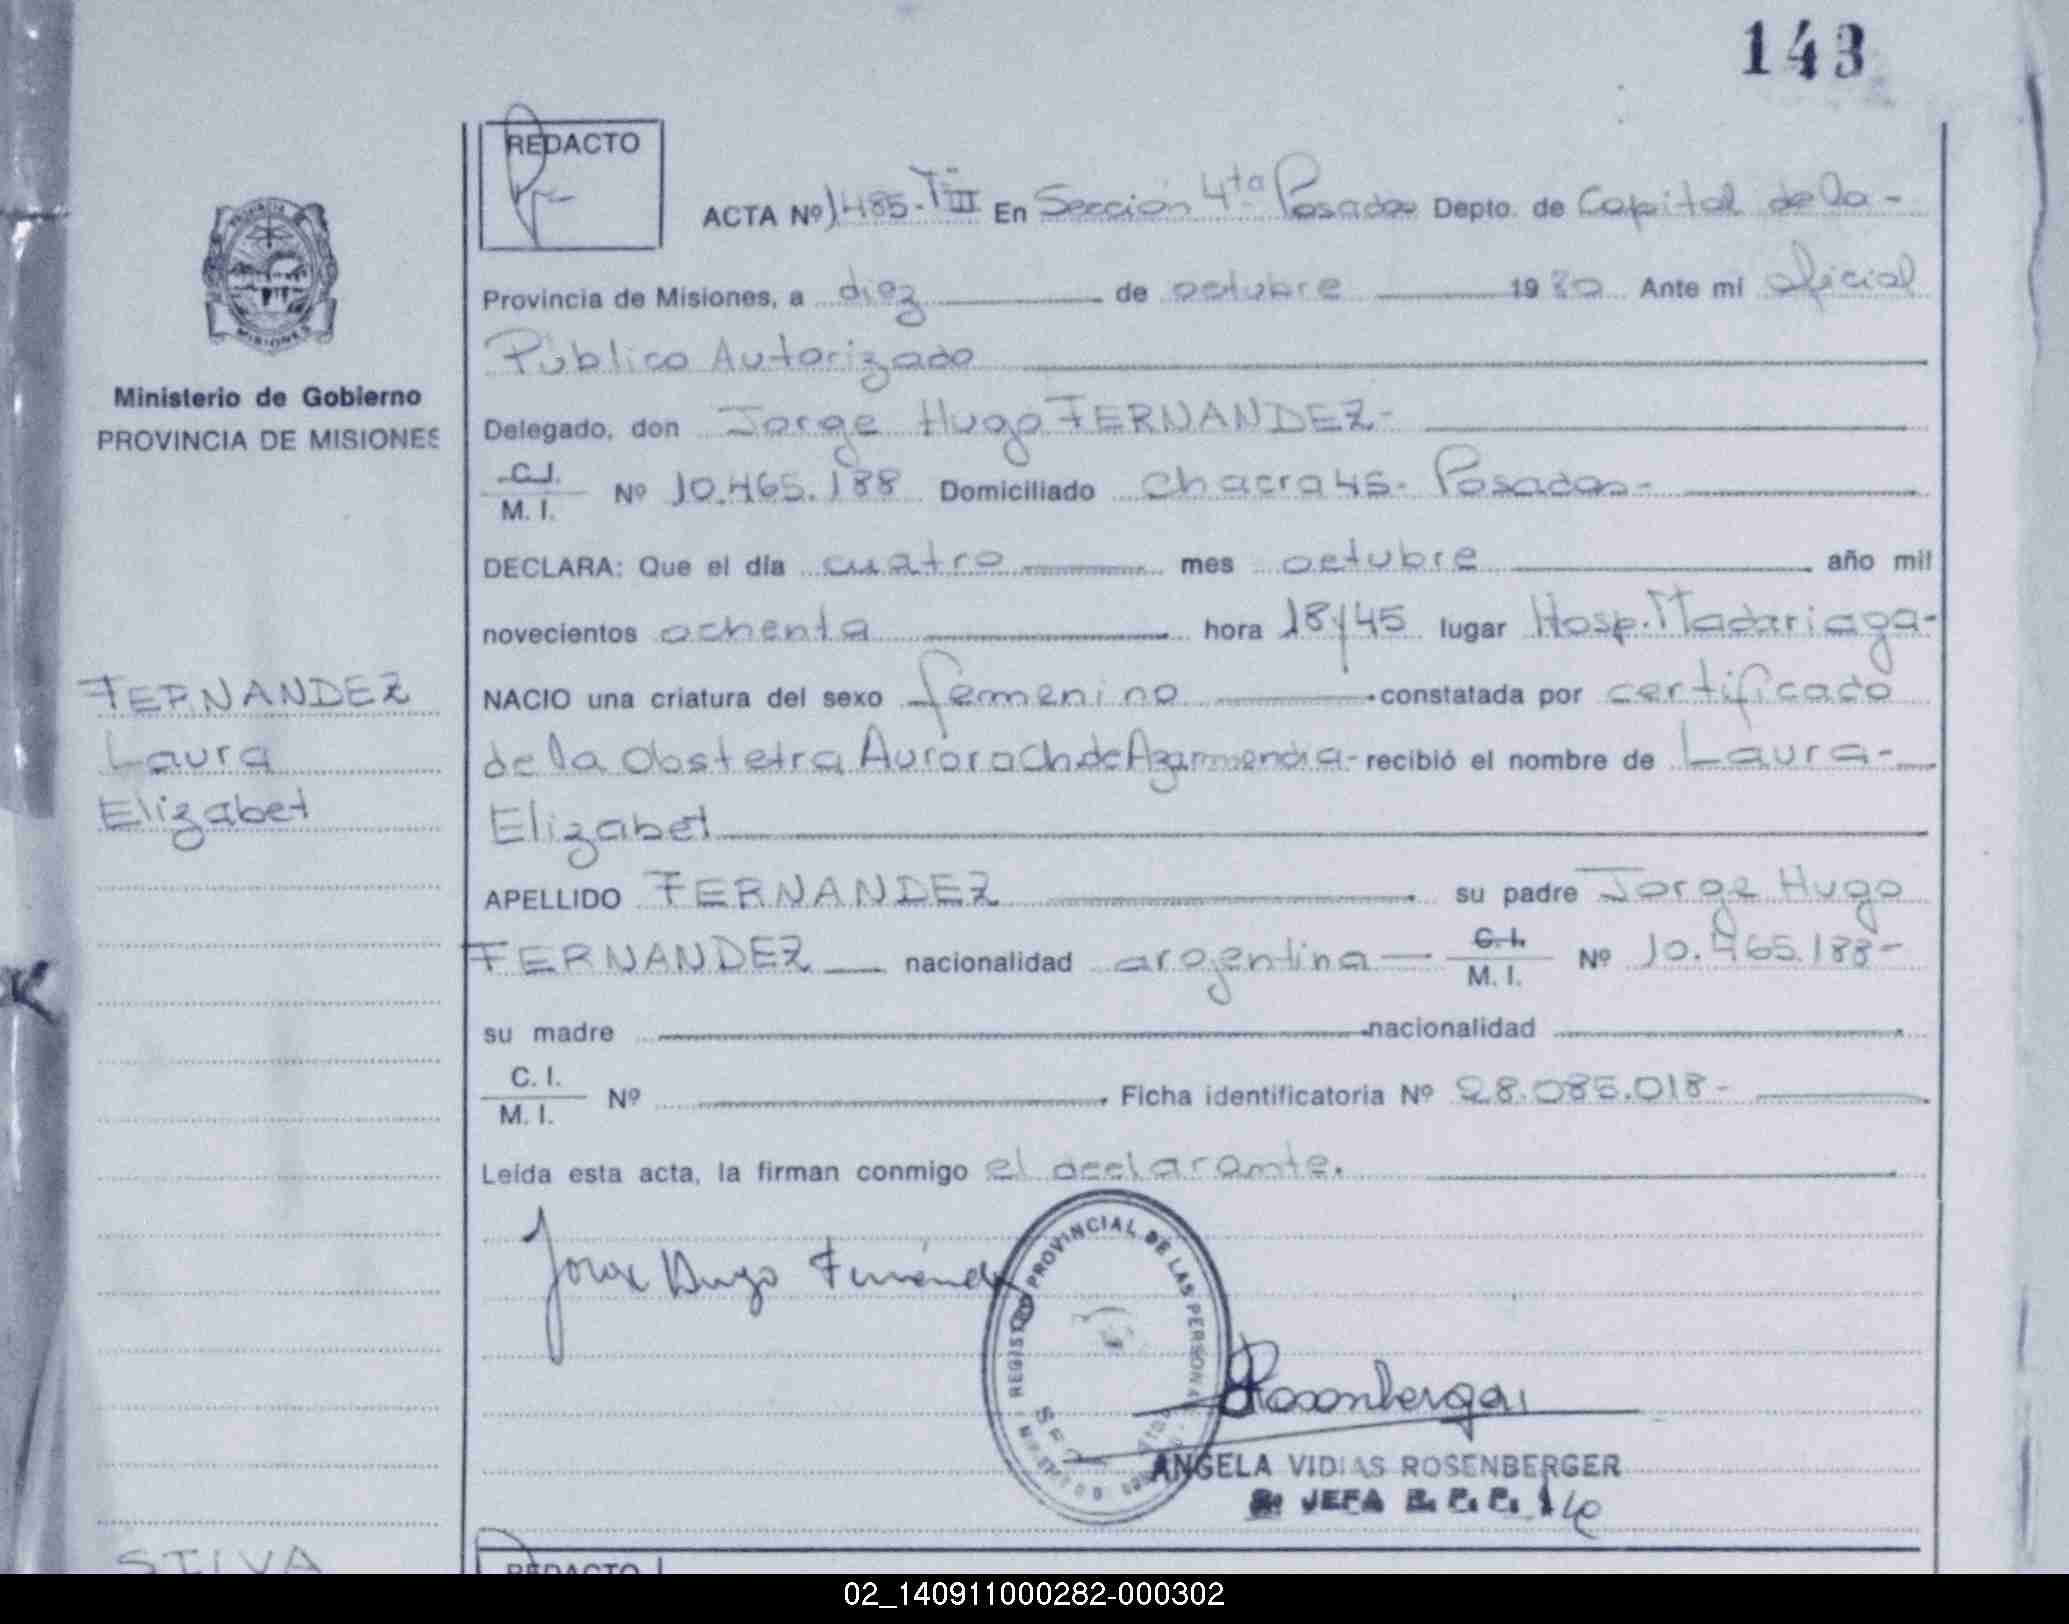 143
REDACTO
ACTA Nº 1485-TIII En Sección 4ta Posadas Depto. de Capital de la -
Provincia de Misiones, a diez de octubre 1980 Ante mi oficial
Público Autorizado
Ministerio de Gobierno
PROVINCIA DE MISIONES
MISIONES
Delegado, don Jorge Hugo FERNANDEZ-
C.I. M. I. Nº 10.465.188 Domiciliado Chacra 45- Posadas-
DECLARA: Que el día cuatro mes octubre año mil
novecientos ochenta hora 18y45 lugar Hosp. Madariaga-
FERNANDEZ
Laura
Elizabet
NACIO una criatura del sexo femenino constatada por certificado
de la Obstetra Aurora Ch. de Azarmendia- recibió el nombre de Laura-
Elizabet
APELLIDO FERNANDEZ su padre Jorge Hugo
FERNANDEZ nacionalidad argentina C.I. M. I. Nº 10.465.188-
su madre nacionalidad
C. I. M. I. Nº Ficha identificatoria Nº 28.085.018-
Leída esta acta, la firman conmigo el declarante.
Jorge Hugo Fernández
REGISTRO PROVINCIAL DE LAS PERSONAS
Rosenberger
ANGELA VIDIAS ROSENBERGER
JEFA
REDACTO
02_140911000282-000302